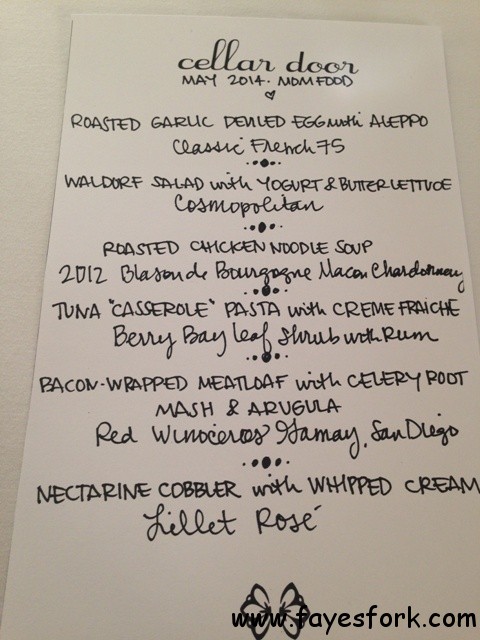 cellar door
MAY 2014. MOM FOOD
ROASTED GARLIC DEVILED EGG with ALEPPO
Classic French 75
WALDORF SALAD with YOGURT & BUTTER LETTUCE
Cosmopolitan
ROASTED CHICKEN NOODLE SOUP
2012 Blason de Bourgogne Macon Chardonnay
TUNA "CASSEROLE" PASTA with CREME FRAICHE
Berry Bay leaf Shrub with Rum
BACON-WRAPPED MEATLOAF with CELERY ROOT
MASH & ARUGULA
Red Winoceros Gamay, San Diego
NECTARINE COBBLER with WHIPPED CREAM
Lillet Rosé
www.fayesfork.com